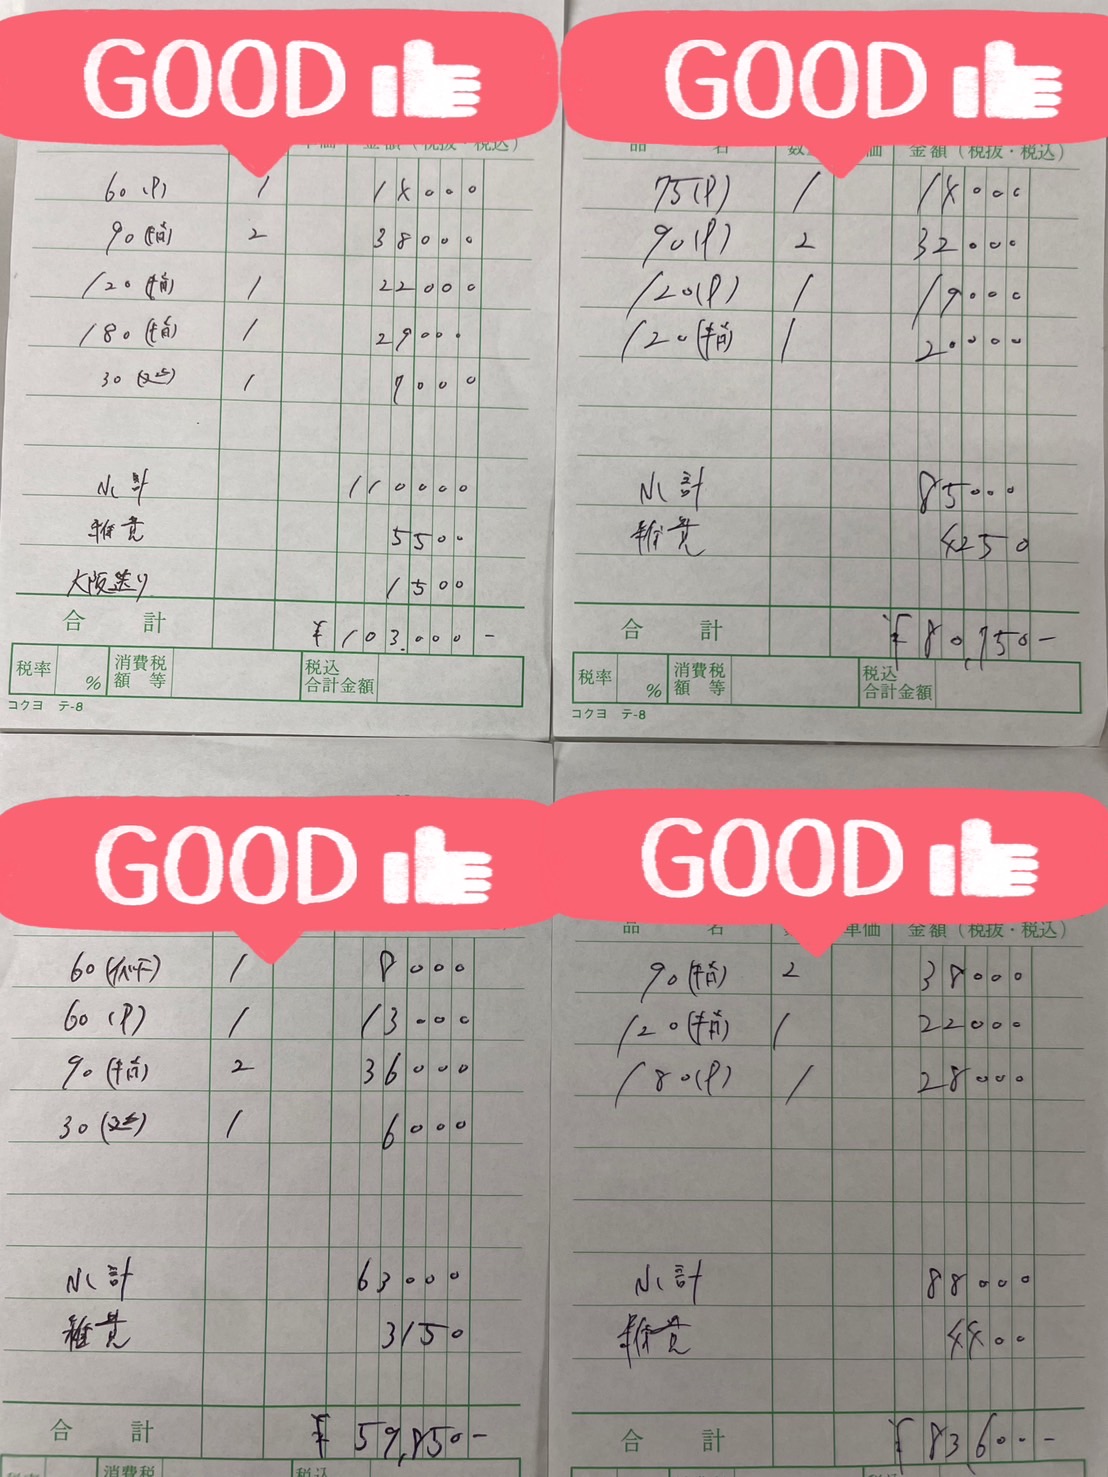 GOOD
金額（税抜・税込）
60 (P) 1 14000
90 (指) 2 38000
120 (指) 1 22000
180 (指) 1 29000
30 1 7000
小計 110000
雑費 5500
大阪送り 1500
合計 ¥103.000-
税率 % 消費税額等 税込合計金額
コクヨ テ-8
GOOD
品名 数 価 金額（税抜・税込）
75(P) 1 14000
90(P) 2 32000
120(P) 1 19000
120(指) 1 20000
小計 85000
雑費 4250
合計 ¥80,750-
税率 % 消費税額等 税込合計金額
コクヨ テ-8
GOOD
60 1 8000
60 (P) 1 13000
90 (指) 2 36000
30 1 6000
小計 63000
雑費 3150
合計 ¥59,850-
消費税 税込
GOOD
品名 単価 金額（税抜・税込）
90(指) 2 38000
120(指) 1 22000
180(P) 1 28000
小計 88000
雑費 4400
合計 ¥83,600-